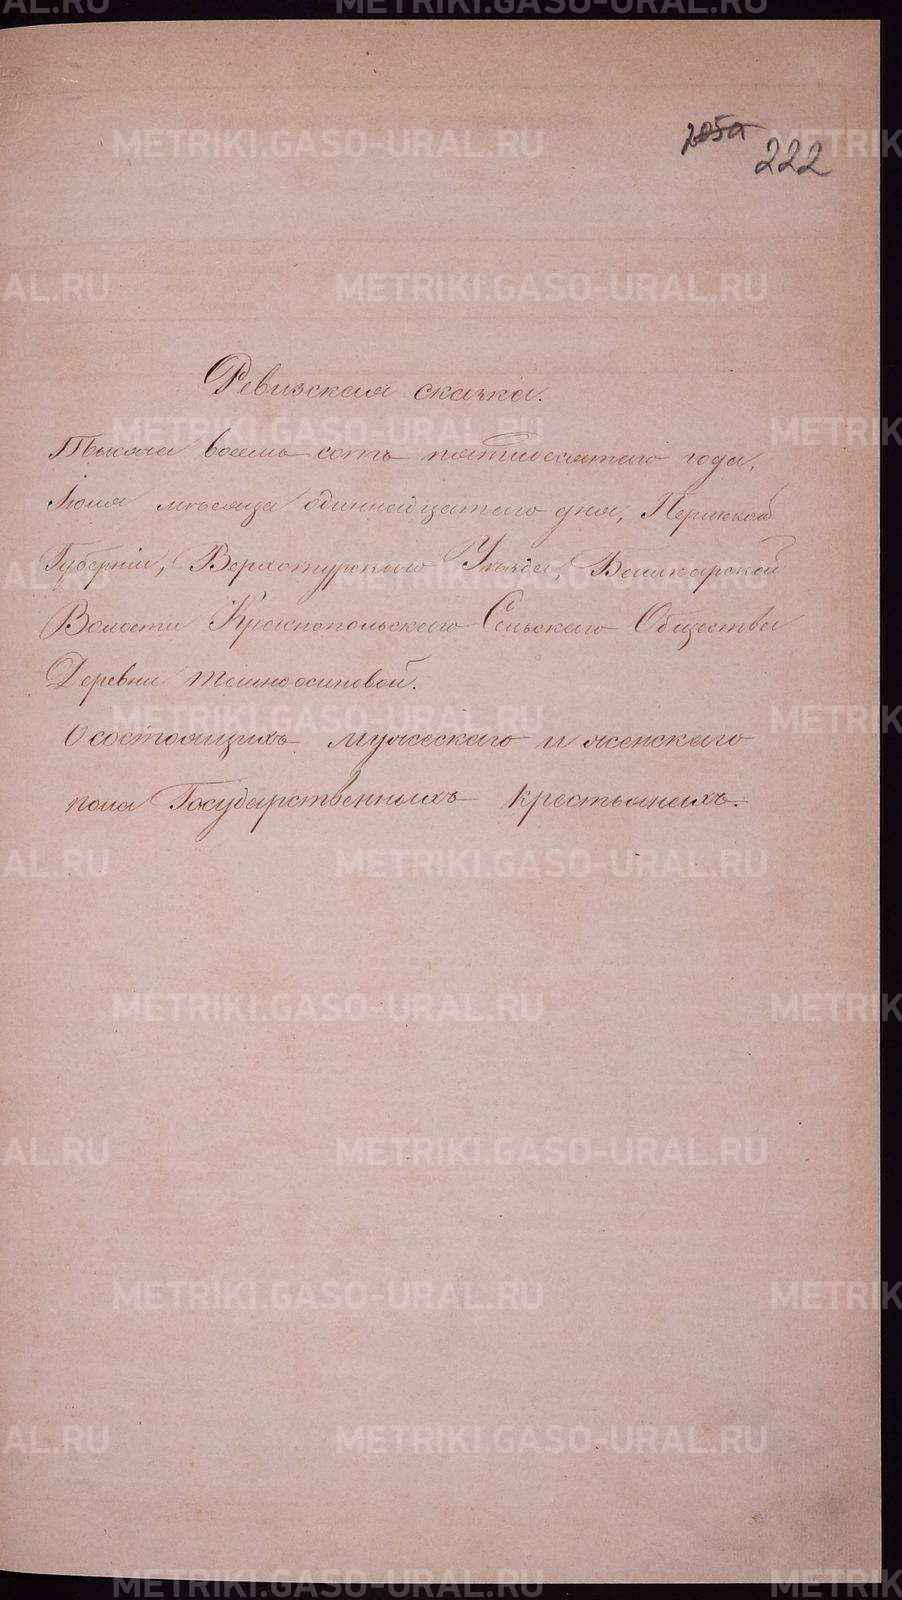 205а
222
Ревизская сказка.
Тысяча восемь сотъ пятидесятаго года,
Іюля мѣсяца одиннадцатаго дня, Пермской
Губерніи, Верхотурскаго Уѣзда, Башкарской
Волости Краснопольскаго Сельскаго Общества
Деревни Темноосиновой.
О состоящихъ мужескаго и женскаго
пола Государственныхъ крестьянахъ.
METRIKI.GASO-URAL.RU